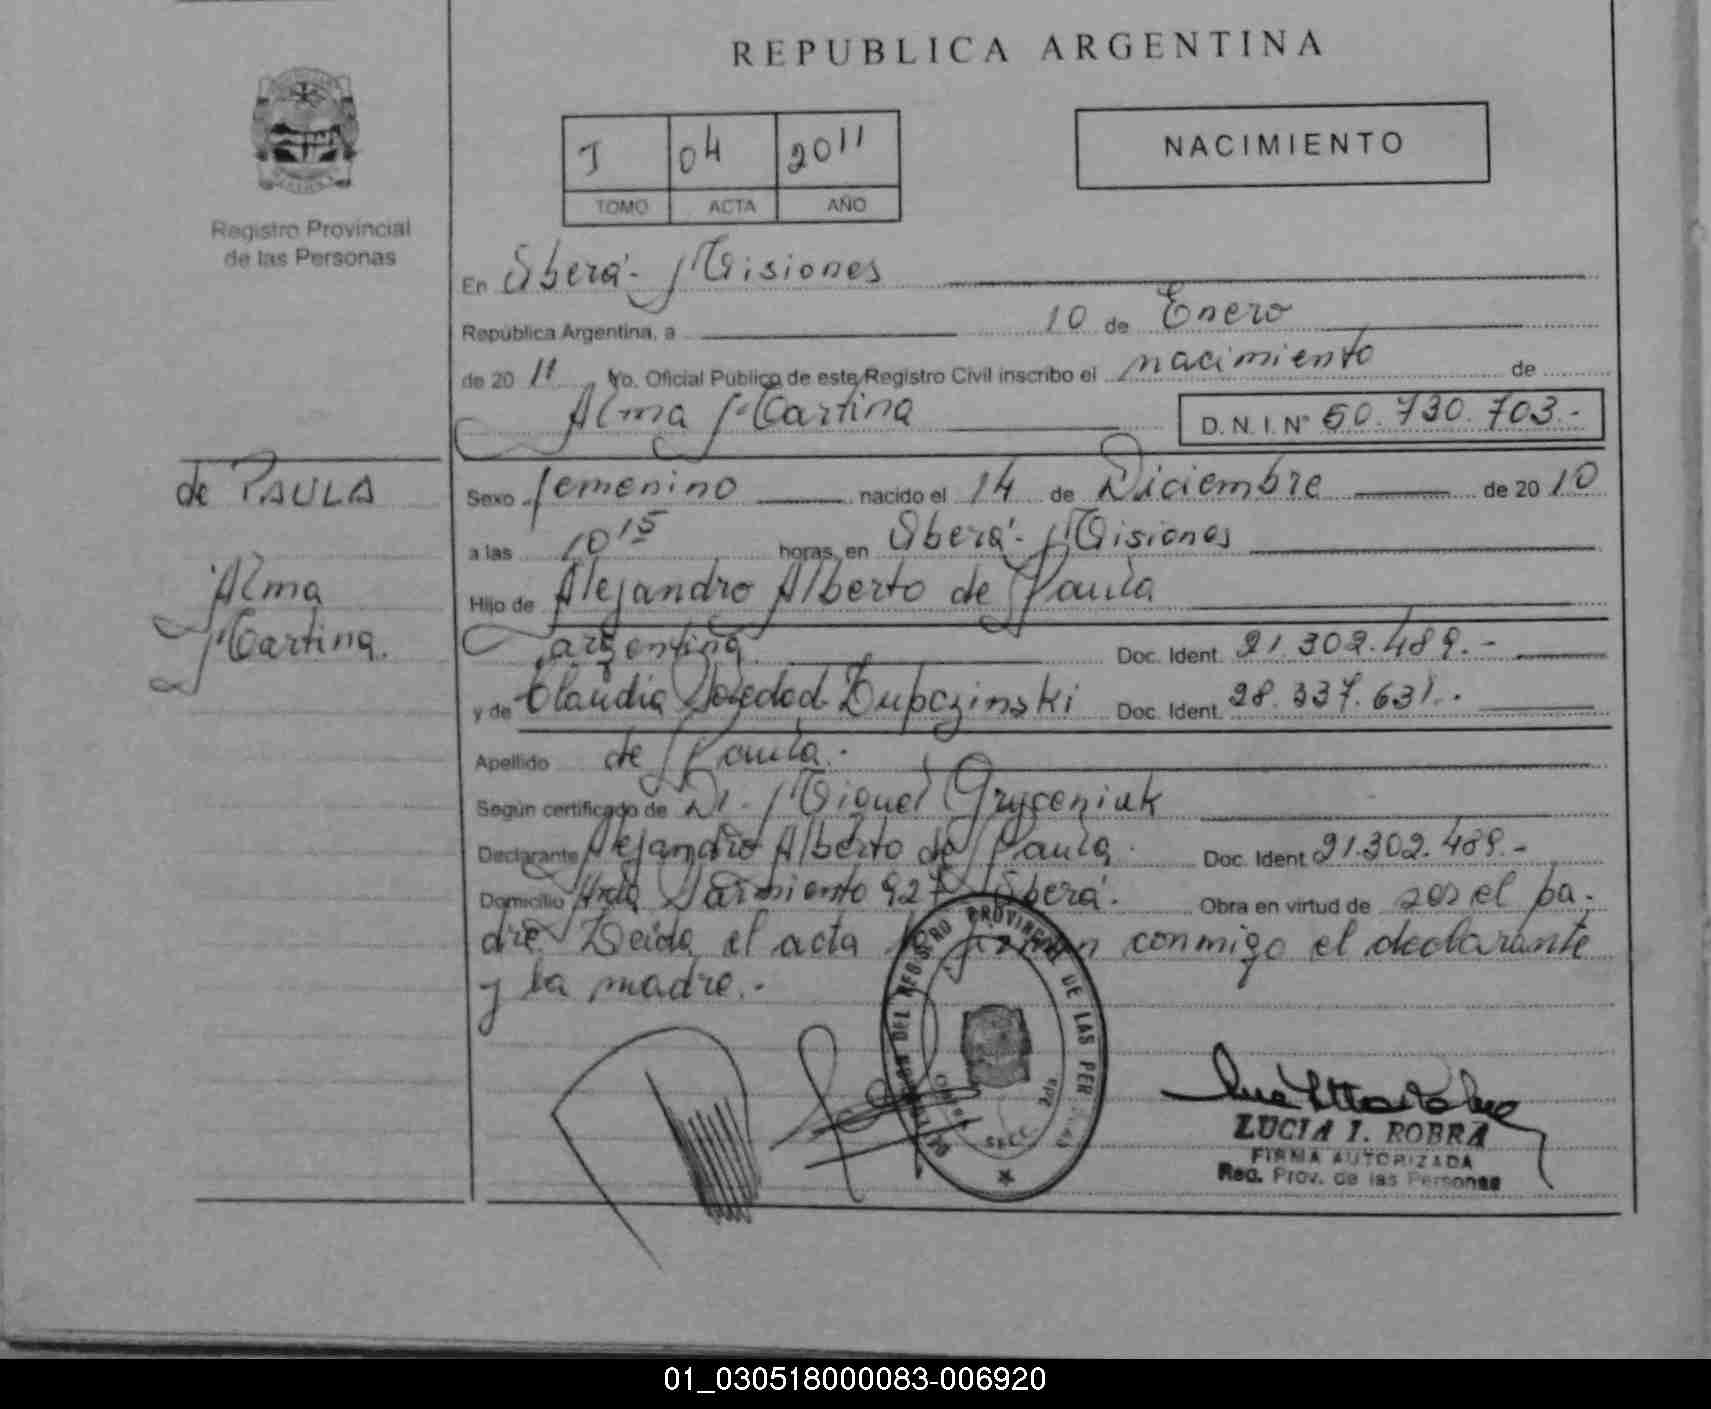 REPUBLICA ARGENTINA
I 04 2011
TOMO ACTA AÑO
NACIMIENTO
Registro Provincial
de las Personas
En Oberá - Misiones
República Argentina, a 10 de Enero
de 20 11 Yo. Oficial Público de este Registro Civil inscribo el nacimiento de
Alma Martina D. N. I. N° 50.730.703.-
de PAULA
Alma
Martina.
Sexo femenino nacido el 14 de Diciembre de 20 10
a las 10 15 horas, en Oberá - Misiones
Hijo de Alejandro Alberto de Paula
argentina Doc. Ident. 21.302.489.-
y de Claudia Soledad Zupczinski Doc. Ident. 28.337.631.-
Apellido de Paula.
Según certificado de Dr. Miguel Gryceniuk
Declarante Alejandro Alberto de Paula Doc. Ident. 21.302.489.-
Domicilio Avda Sarmiento 927 Oberá. Obra en virtud de ser el pa-
dre. Leída el acta la firman conmigo el declarante
y la madre.-
DEL REGISTRO PROVINCIAL DE LAS PER
LUCIA I. ROBRA
FIRMA AUTORIZADA
Reg. Prov. de las Personas
01_030518000083-006920